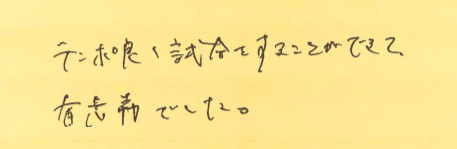 テンポ良く試合をすることができて、
有意義でした。